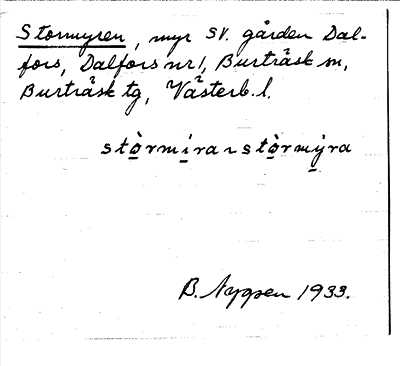 Stormyren, myr SV. gården Dal-
fors, Dalfors nr 1, Burträsk sn,
Burträsk tg, Västerb. l.
stò̱rmi̱ra ~ stò̱rmy̱ra
B. Nygren 1933.